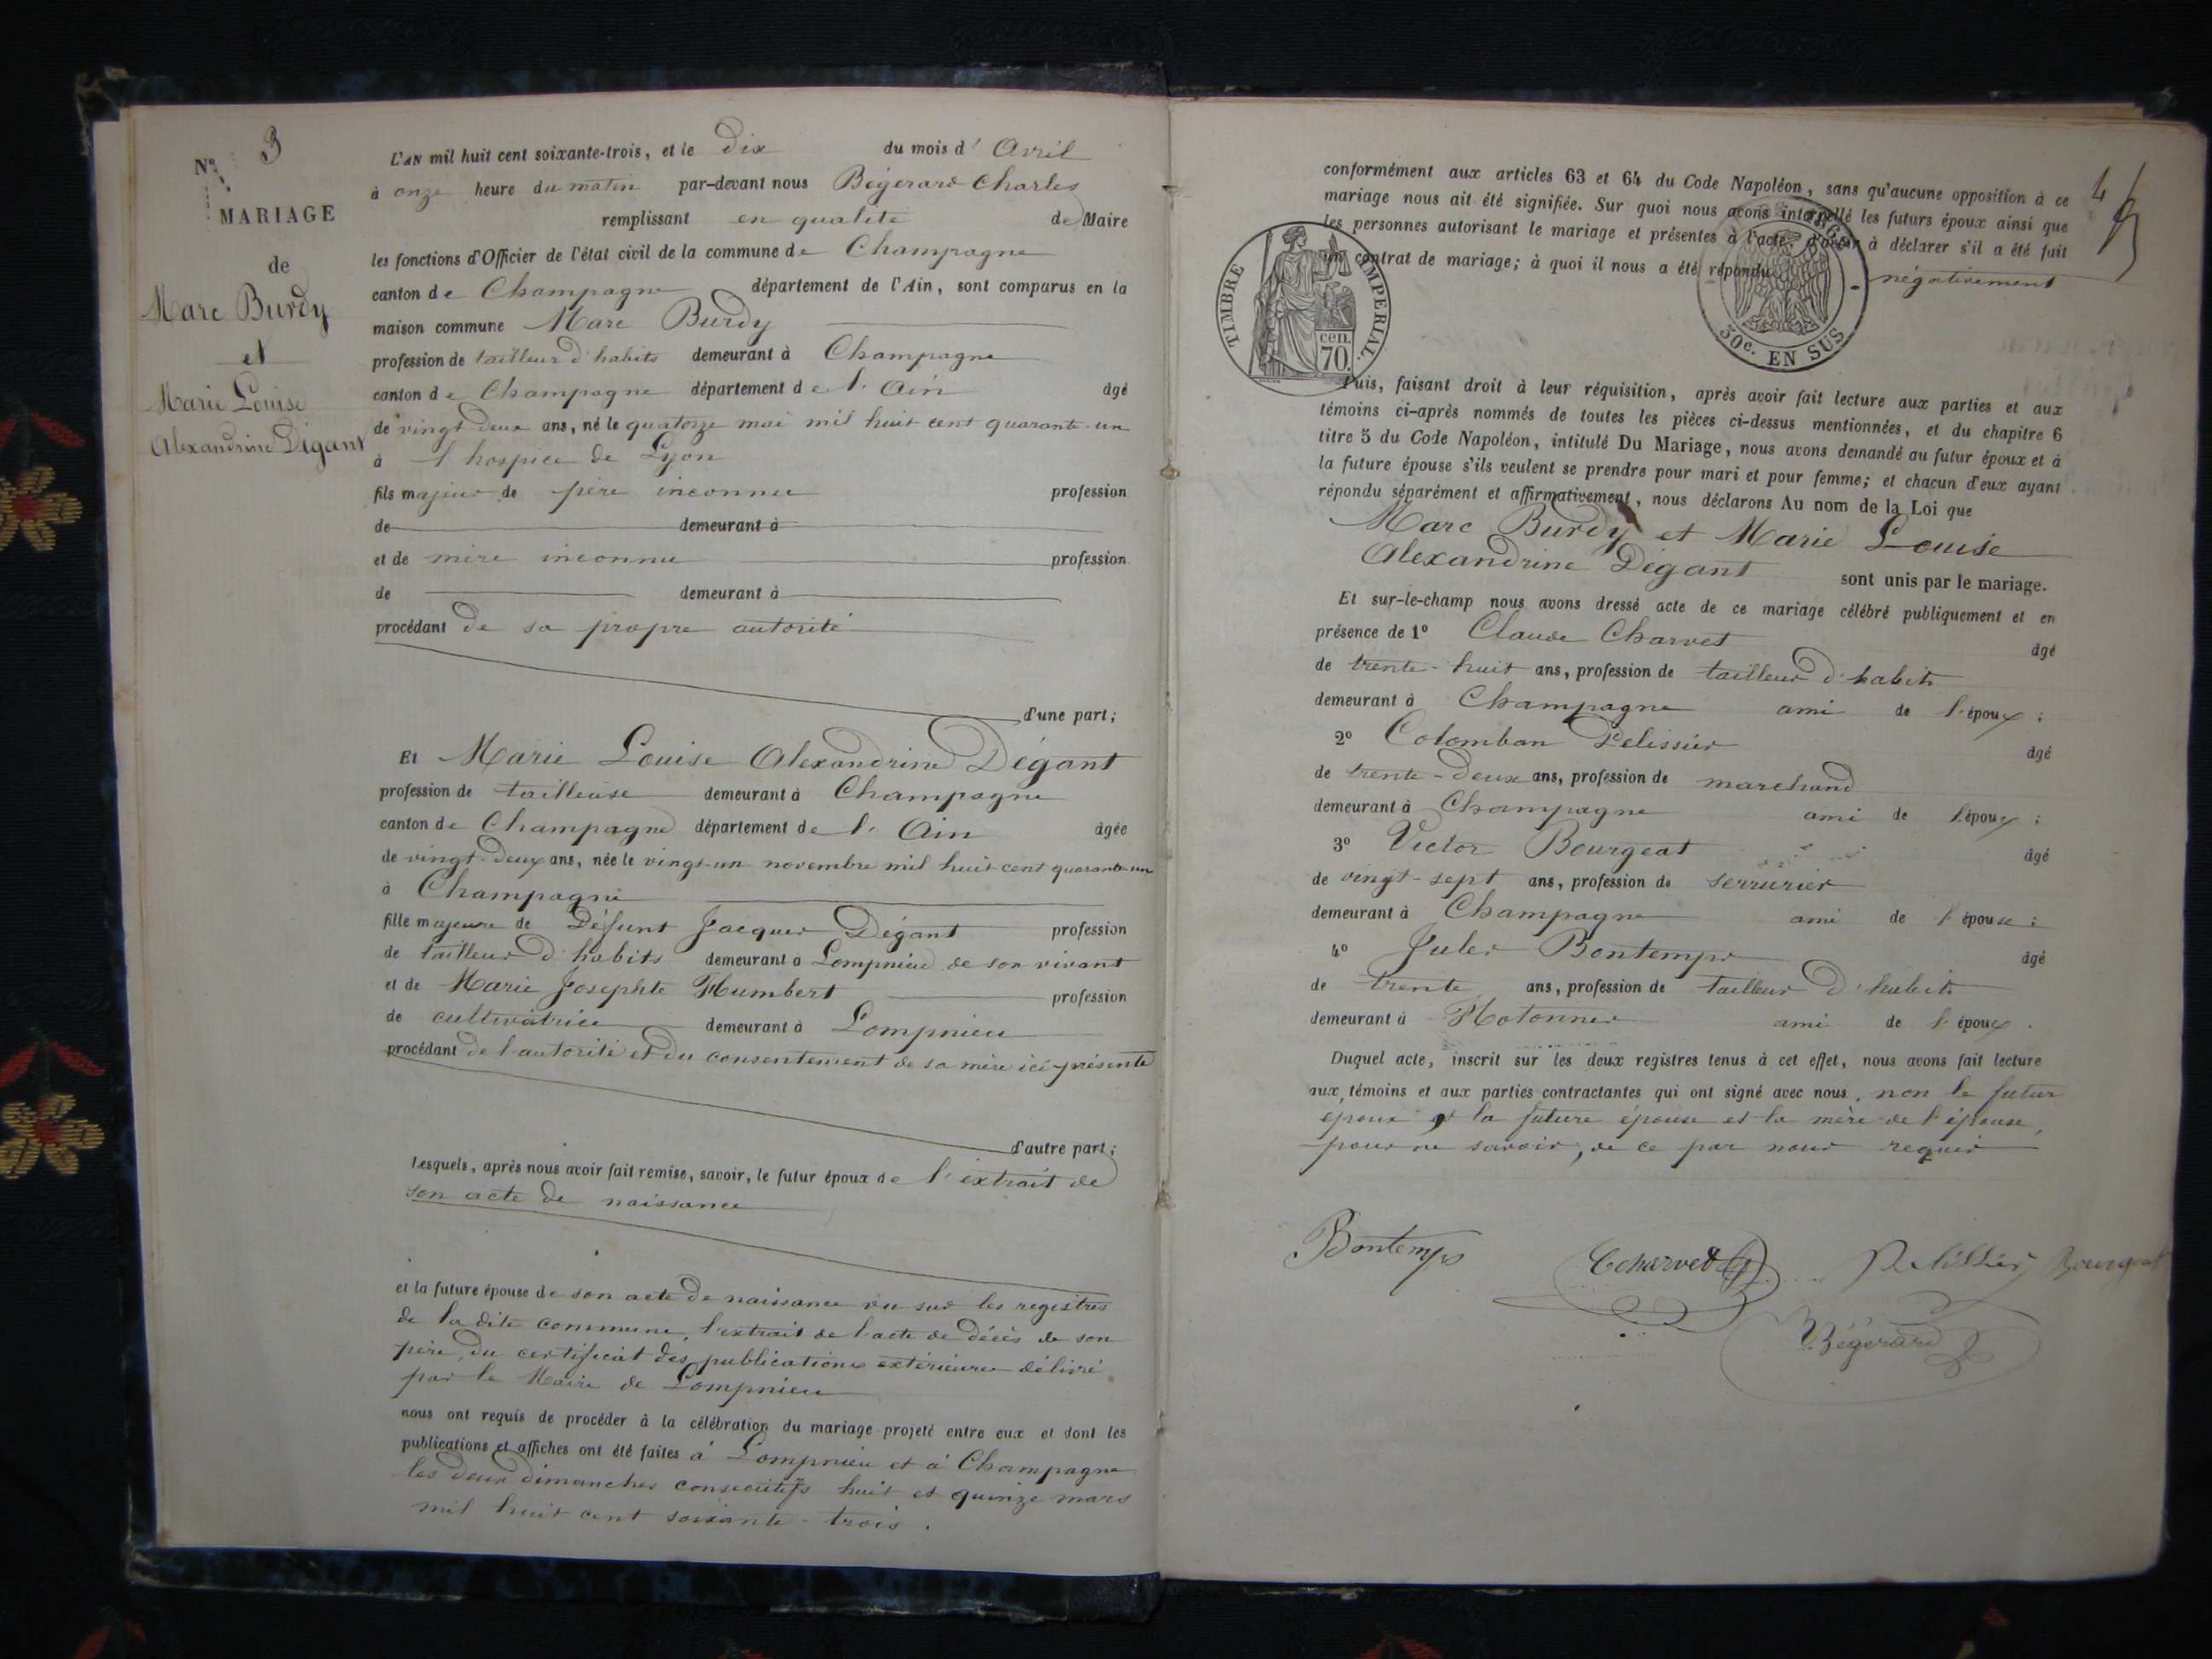 Nº 3
MARIAGE
de
Marc Burdy
et
Marie Louise
Alexandrine Dégant
L'AN mil huit cent soixante-trois, et le dix du mois d' Avril
à onze heure du matin par-devant nous Bégerard Charles
remplissant en qualité de Maire
les fonctions d'Officier de l'état civil de la commune de Champagne
canton de Champagne département de l'Ain, sont comparus en la
maison commune Marc Burdy
profession de tailleur d'habits demeurant à Champagne
canton de Champagne département de l'Ain âgé
de vingt deux ans, né le quatorze mai mil huit cent quarante-un
à l'hospice de Lyon
fils majeur de père inconnu profession
de demeurant à
et de mère inconnue profession
de demeurant à
procédant de sa propre autorité
d'une part;
Et Marie Louise Alexandrine Dégant
profession de tailleuse demeurant à Champagne
canton de Champagne département de l'Ain âgée
de vingt-deux ans, née le vingt-un novembre mil huit cent quarante-un
à Champagne
fille majeure de Défunt Jacques Dégant profession
de tailleur d'habits demeurant à Lompnieu de son vivant
et de Marie Josephte Humbert profession
de cultivatrice demeurant à Lompnieu
procédant de l'autorité et du consentement de sa mère ici présente
d'autre part;
Lesquels, après nous avoir fait remise, savoir, le futur époux de l'extrait de
son acte de naissance
et la future épouse de son acte de naissance vu sur les registres
de la dite commune, l'extrait de l'acte de décès de son
père, du certificat des publications extérieures délivré
par le Maire de Lompnieu
nous ont requis de procéder à la célébration du mariage projeté entre eux et dont les
publications et affiches ont été faites à Lompnieu et à Champagne
les deux dimanches consécutifs huit et quinze mars
mil huit cent soixante-trois.
4
conformément aux articles 63 et 64 du Code Napoléon, sans qu'aucune opposition à ce
mariage nous ait été signifiée. Sur quoi nous avons interpellé les futurs époux ainsi que
les personnes autorisant le mariage et présentes à l'acte, d'avoir à déclarer s'il a été fait
un contrat de mariage; à quoi il nous a été répondu négativement
TIMBRE IMPERIAL.
cen.
70.
30c. EN SUS
Puis, faisant droit à leur réquisition, après avoir fait lecture aux parties et aux
témoins ci-après nommés de toutes les pièces ci-dessus mentionnées, et du chapitre 6
titre 5 du Code Napoléon, intitulé Du Mariage, nous avons demandé au futur époux et à
la future épouse s'ils veulent se prendre pour mari et pour femme; et chacun d'eux ayant
répondu séparément et affirmativement, nous déclarons Au nom de la Loi que
Marc Burdy et Marie Louise
Alexandrine Dégant sont unis par le mariage.
Et sur-le-champ nous avons dressé acte de ce mariage célébré publiquement et en
présence de 1º Claude Charvet âgé
de trente-huit ans, profession de tailleur d'habits
demeurant à Champagne ami de l'époux;
2º Colomban Pelissier âgé
de trente-deux ans, profession de marchand
demeurant à Champagne ami de l'époux;
3º Victor Bourgeat âgé
de vingt-sept ans, profession de serrurier
demeurant à Champagne ami de l'épouse;
4º Jules Bontemps âgé
de trente ans, profession de tailleur d'habits
demeurant à Hotonnes ami de l'époux.
Duquel acte, inscrit sur les deux registres tenus à cet effet, nous avons fait lecture
aux témoins et aux parties contractantes qui ont signé avec nous, non le futur
époux et la future épouse et la mère de l'épouse,
pour ne savoir, de ce par nous requis
Bontemps C charvet Pelissier Bourgeat
Bégerard